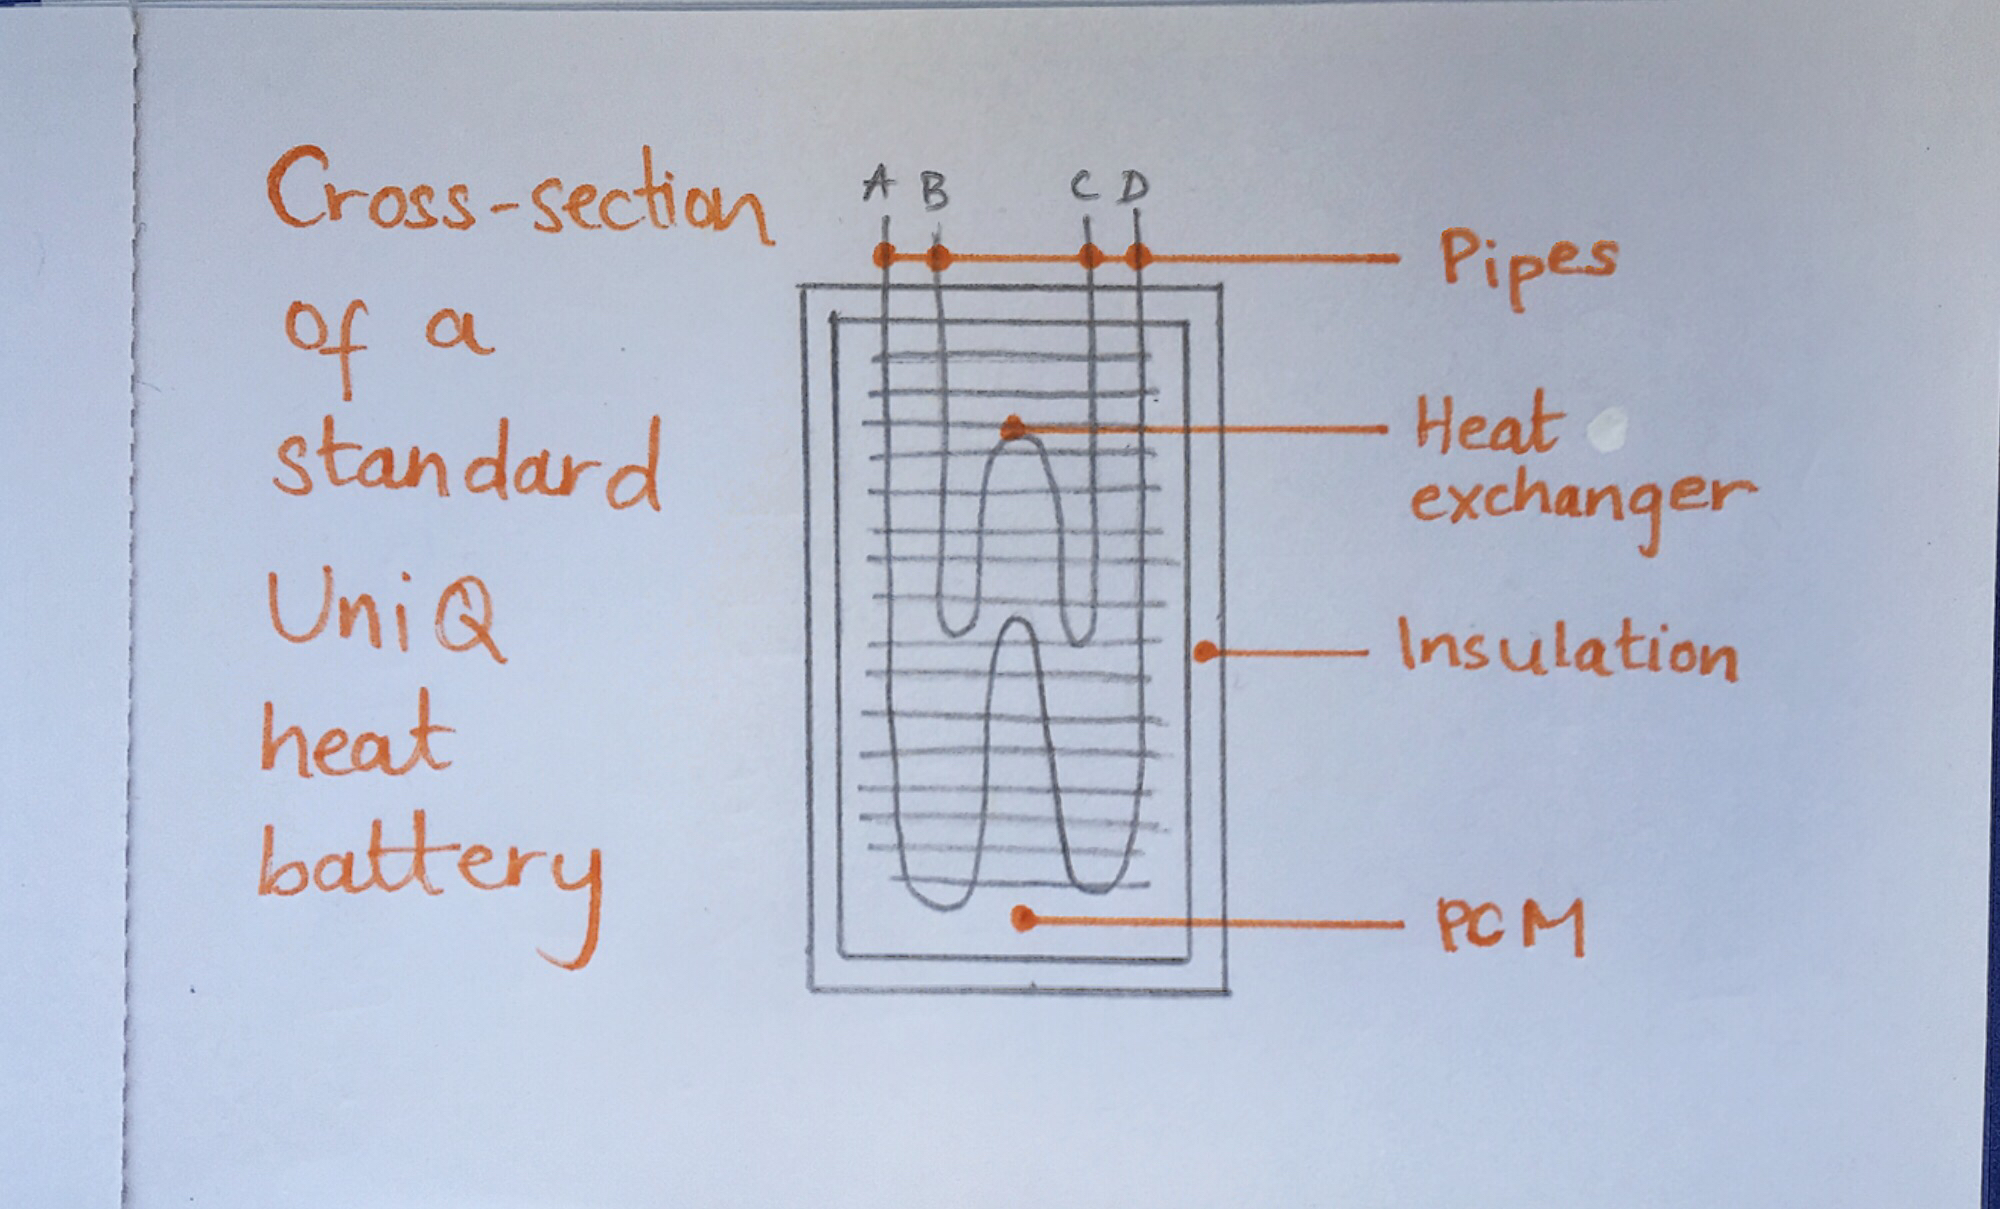 Cross-section
of a
standard
UniQ
heat
battery
A B C D
Pipes
Heat
exchanger
Insulation
PCM